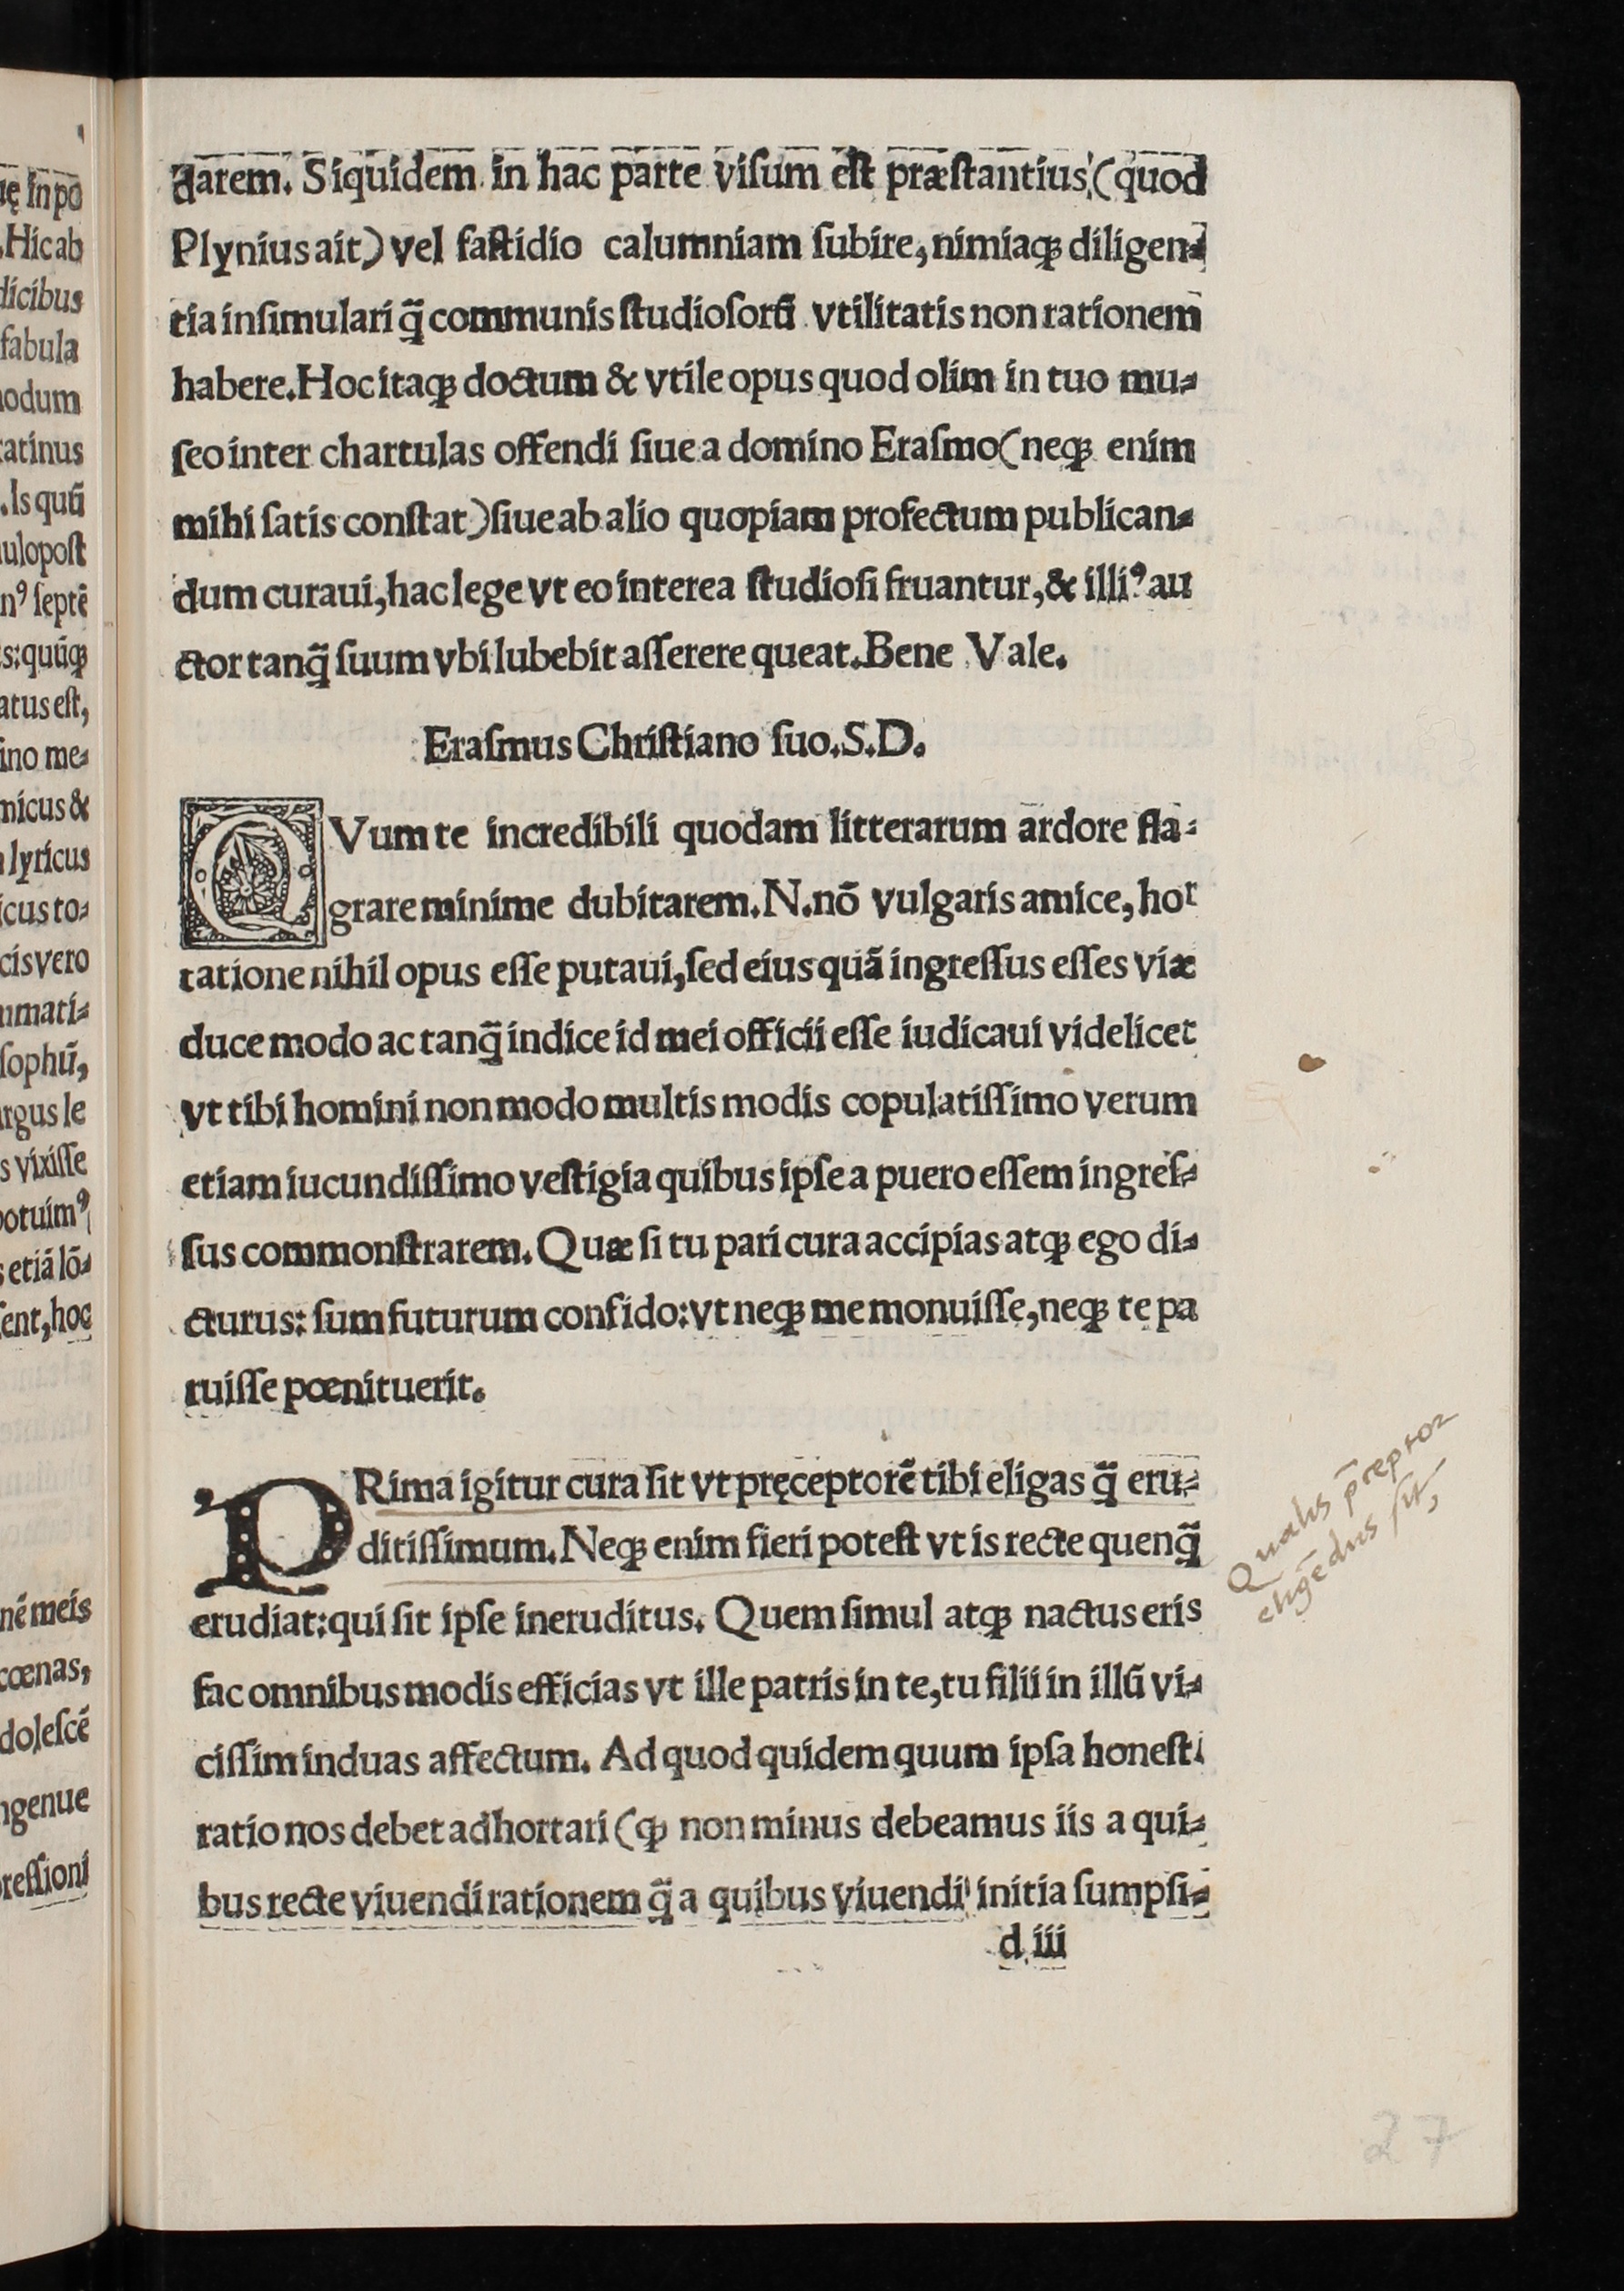 darem. Siquidem in hac parte viſum eſt præſtantius (quod
Plynius ait) vel faſtidio calumniam ſubire, nimiaqꝫ diligen⸗
tia inſimulari q̃ communis ſtudioſorũ vtilitatis non rationem
habere. Hoc itaqꝫ doctum & vtile opus quod olim in tuo mu⸗
ſeo inter chartulas offendi ſiue a domino Eraſmo (neqꝫ enim
mihi ſatis conſtat) ſiue ab alio quopiam profectum publican⸗
dum curaui, hac lege vt eo interea ſtudioſi fruantur, & illiꝰ au
ctor tanq̃ ſuum vbi lubebit aſſerere queat. Bene Vale.
Eraſmus Chriſtiano ſuo. S. D.
QVum te incredibili quodam litterarum ardore fla⸗
grare minime dubitarem. N. nõ vulgaris amice, hor
tatione nihil opus eſſe putaui, ſed eius quã ingreſſus eſſes viæ
duce modo ac tanq̃ indice id mei officii eſſe iudicaui videlicet
vt tibi homini non modo multis modis copulatiſſimo verum
etiam iucundiſſimo veſtigia quibus ipſe a puero eſſem ingreſ⸗
ſus commonſtrarem. Quæ ſi tu pari cura accipias atqꝫ ego di⸗
cturus: ſum futurum confido: vt neqꝫ me monuiſſe, neqꝫ te pa
ruiſſe pœnituerit.
PRima igitur cura ſit vt pręceptorẽ tibi eligas q̃ eru⸗
ditiſſimum. Neqꝫ enim fieri poteſt vt is recte quenq̃
erudiat: qui ſit ipſe ineruditus. Quem ſimul atqꝫ nactus eris
fac omnibus modis efficias vt ille patris in te, tu filii in illũ vi⸗
ciſſim induas affectum. Ad quod quidem quum ipſa honeſti
ratio nos debet adhortari (qꝫ non minus debeamus iis a qui⸗
bus recte viuendi rationem q̃ a quibus viuendi initia ſumpſi⸗
d iii
Qualis p̄reptor
eligẽdus ſit,
27